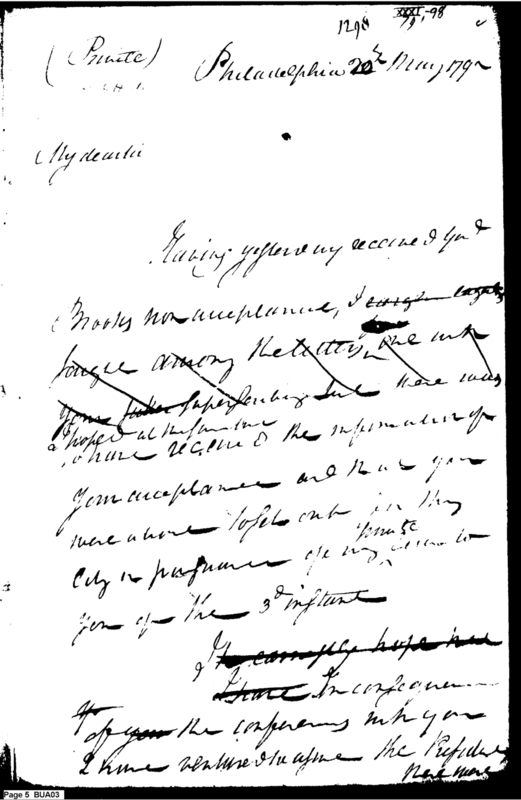 1298 XXXI, 98
(Private)
Philadelphia 20th May 1792
My dear sir
Having yesterday received Genl
Brooks non acceptance, I
among the letters, one with
your superscribing but there was
I hoped at the same time
to have received the information of
your acceptance and that you
were about to set out for this
City in pursuance of my private letter to
you of the 3d instant
I earnestly hope
I have In consequence
of the conferences with you
I have ventured to assure the President
there were
Page 5 BUA03